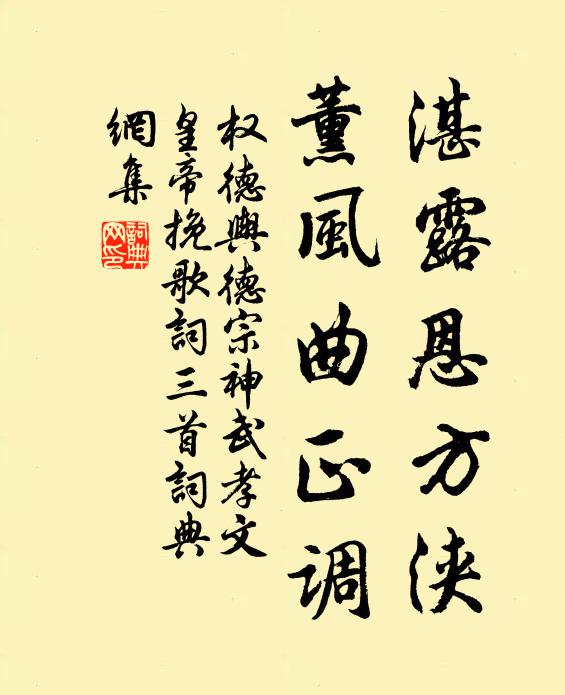 湛露恩方浃
薰风曲正调
权德舆德宗神武孝文
皇帝挽歌词三首词典
网集
词典网印